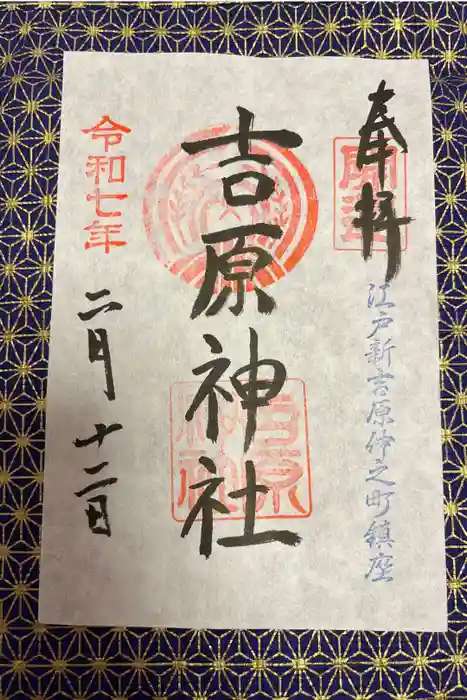 奉拝
開運
江戸新吉原仲之町鎮座
吉原神社
吉原神社
令和七年
二月十二日